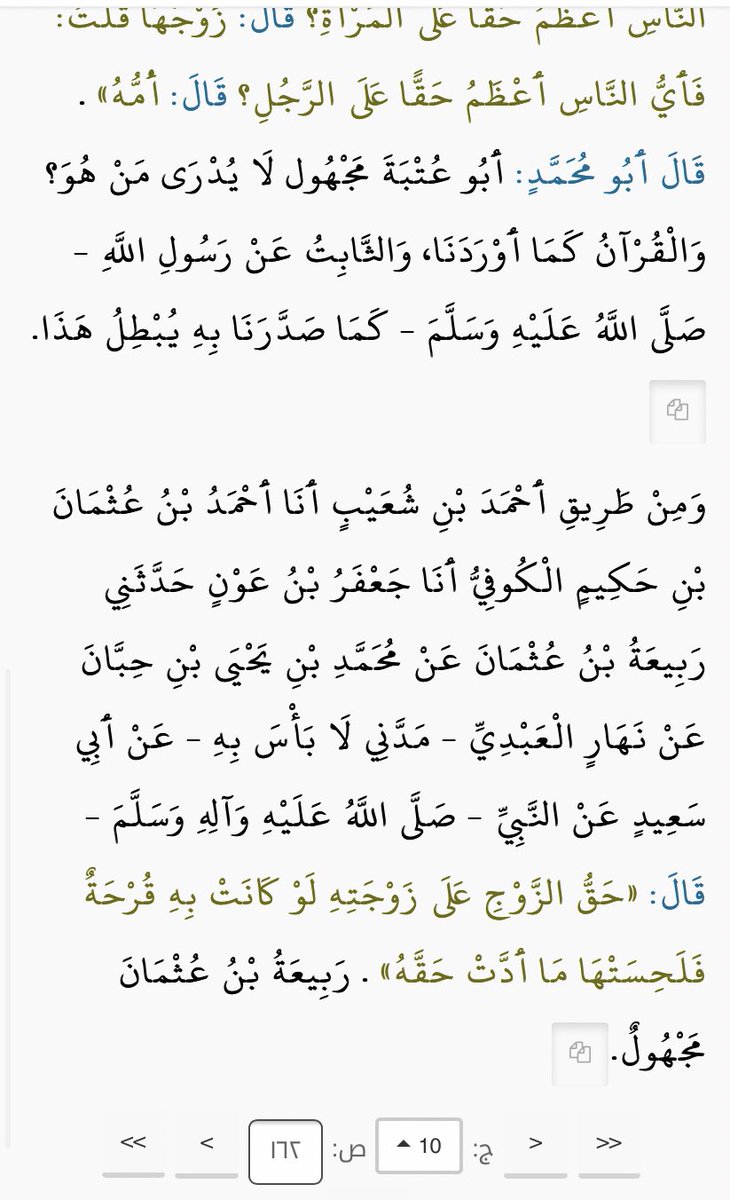 النَّاسِ أَعْظَمُ حَقًّا عَلَى الْمَرْأَةِ؟ قَالَ: زَوْجُهَا قُلْتُ:
فَأَيُّ النَّاسِ أَعْظَمُ حَقًّا عَلَى الرَّجُلِ؟ قَالَ: أُمُّهُ» .
قَالَ أَبُو مُحَمَّدٍ: أَبُو عُتْبَةَ مَجْهُول لَا يُدْرَى مَنْ هُوَ؟
وَالْقُرْآنُ كَمَا أَوْرَدَنَا، وَالثَّابِتُ عَنْ رَسُولِ اللَّهِ -
صَلَّى اللَّهُ عَلَيْهِ وَسَلَّمَ - كَمَا صَدَّرَنَا بِهِ يُبْطِلُ هَذَا.
وَمِنْ طَرِيقِ أَحْمَدَ بْنِ شُعَيْبٍ أَنَا أَحْمَدُ بْنُ عُثْمَانَ
بْنِ حَكِيمٍ الْكُوفِيُّ أَنَا جَعْفَرُ بْنُ عَوْنٍ حَدَّثَنِي
رَبِيعَةُ بْنُ عُثْمَانَ عَنْ مُحَمَّدِ بْنِ يَحْيَى بْنِ حِبَّانَ
عَنْ نَهَارٍ الْعَبْدِيِّ - مَدَّنِي لَا بَأْسَ بِهِ - عَنْ أَبِي
سَعِيدٍ عَنْ النَّبِيِّ - صَلَّى اللَّهُ عَلَيْهِ وَآلِهِ وَسَلَّمَ -
قَالَ: «حَقُّ الزَّوْجِ عَلَى زَوْجَتِهِ لَوْ كَانَتْ بِهِ قُرْحَةٌ
فَلَحِسَتْهَا مَا أَدَّتْ حَقَّهُ» . رَبِيعَةُ بْنُ عُثْمَانَ
مَجْهُولٌ.
>> > ج: 10 ص: ١٦٢ < <<